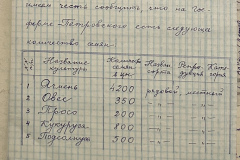 имеем честь сообщить что на Гос-
ферме Петровского есть следующее
количество семян
№ Название культуры Количество семян в цн. Назван. сорта Репро-дукция Кате-гория
1 Ячмень 4200 рядовой местный
2 Овес 350 " " "
3 Просо 200 " " "
4 Кукуруза 800 " " "
5 Подсолнух 500 " " "